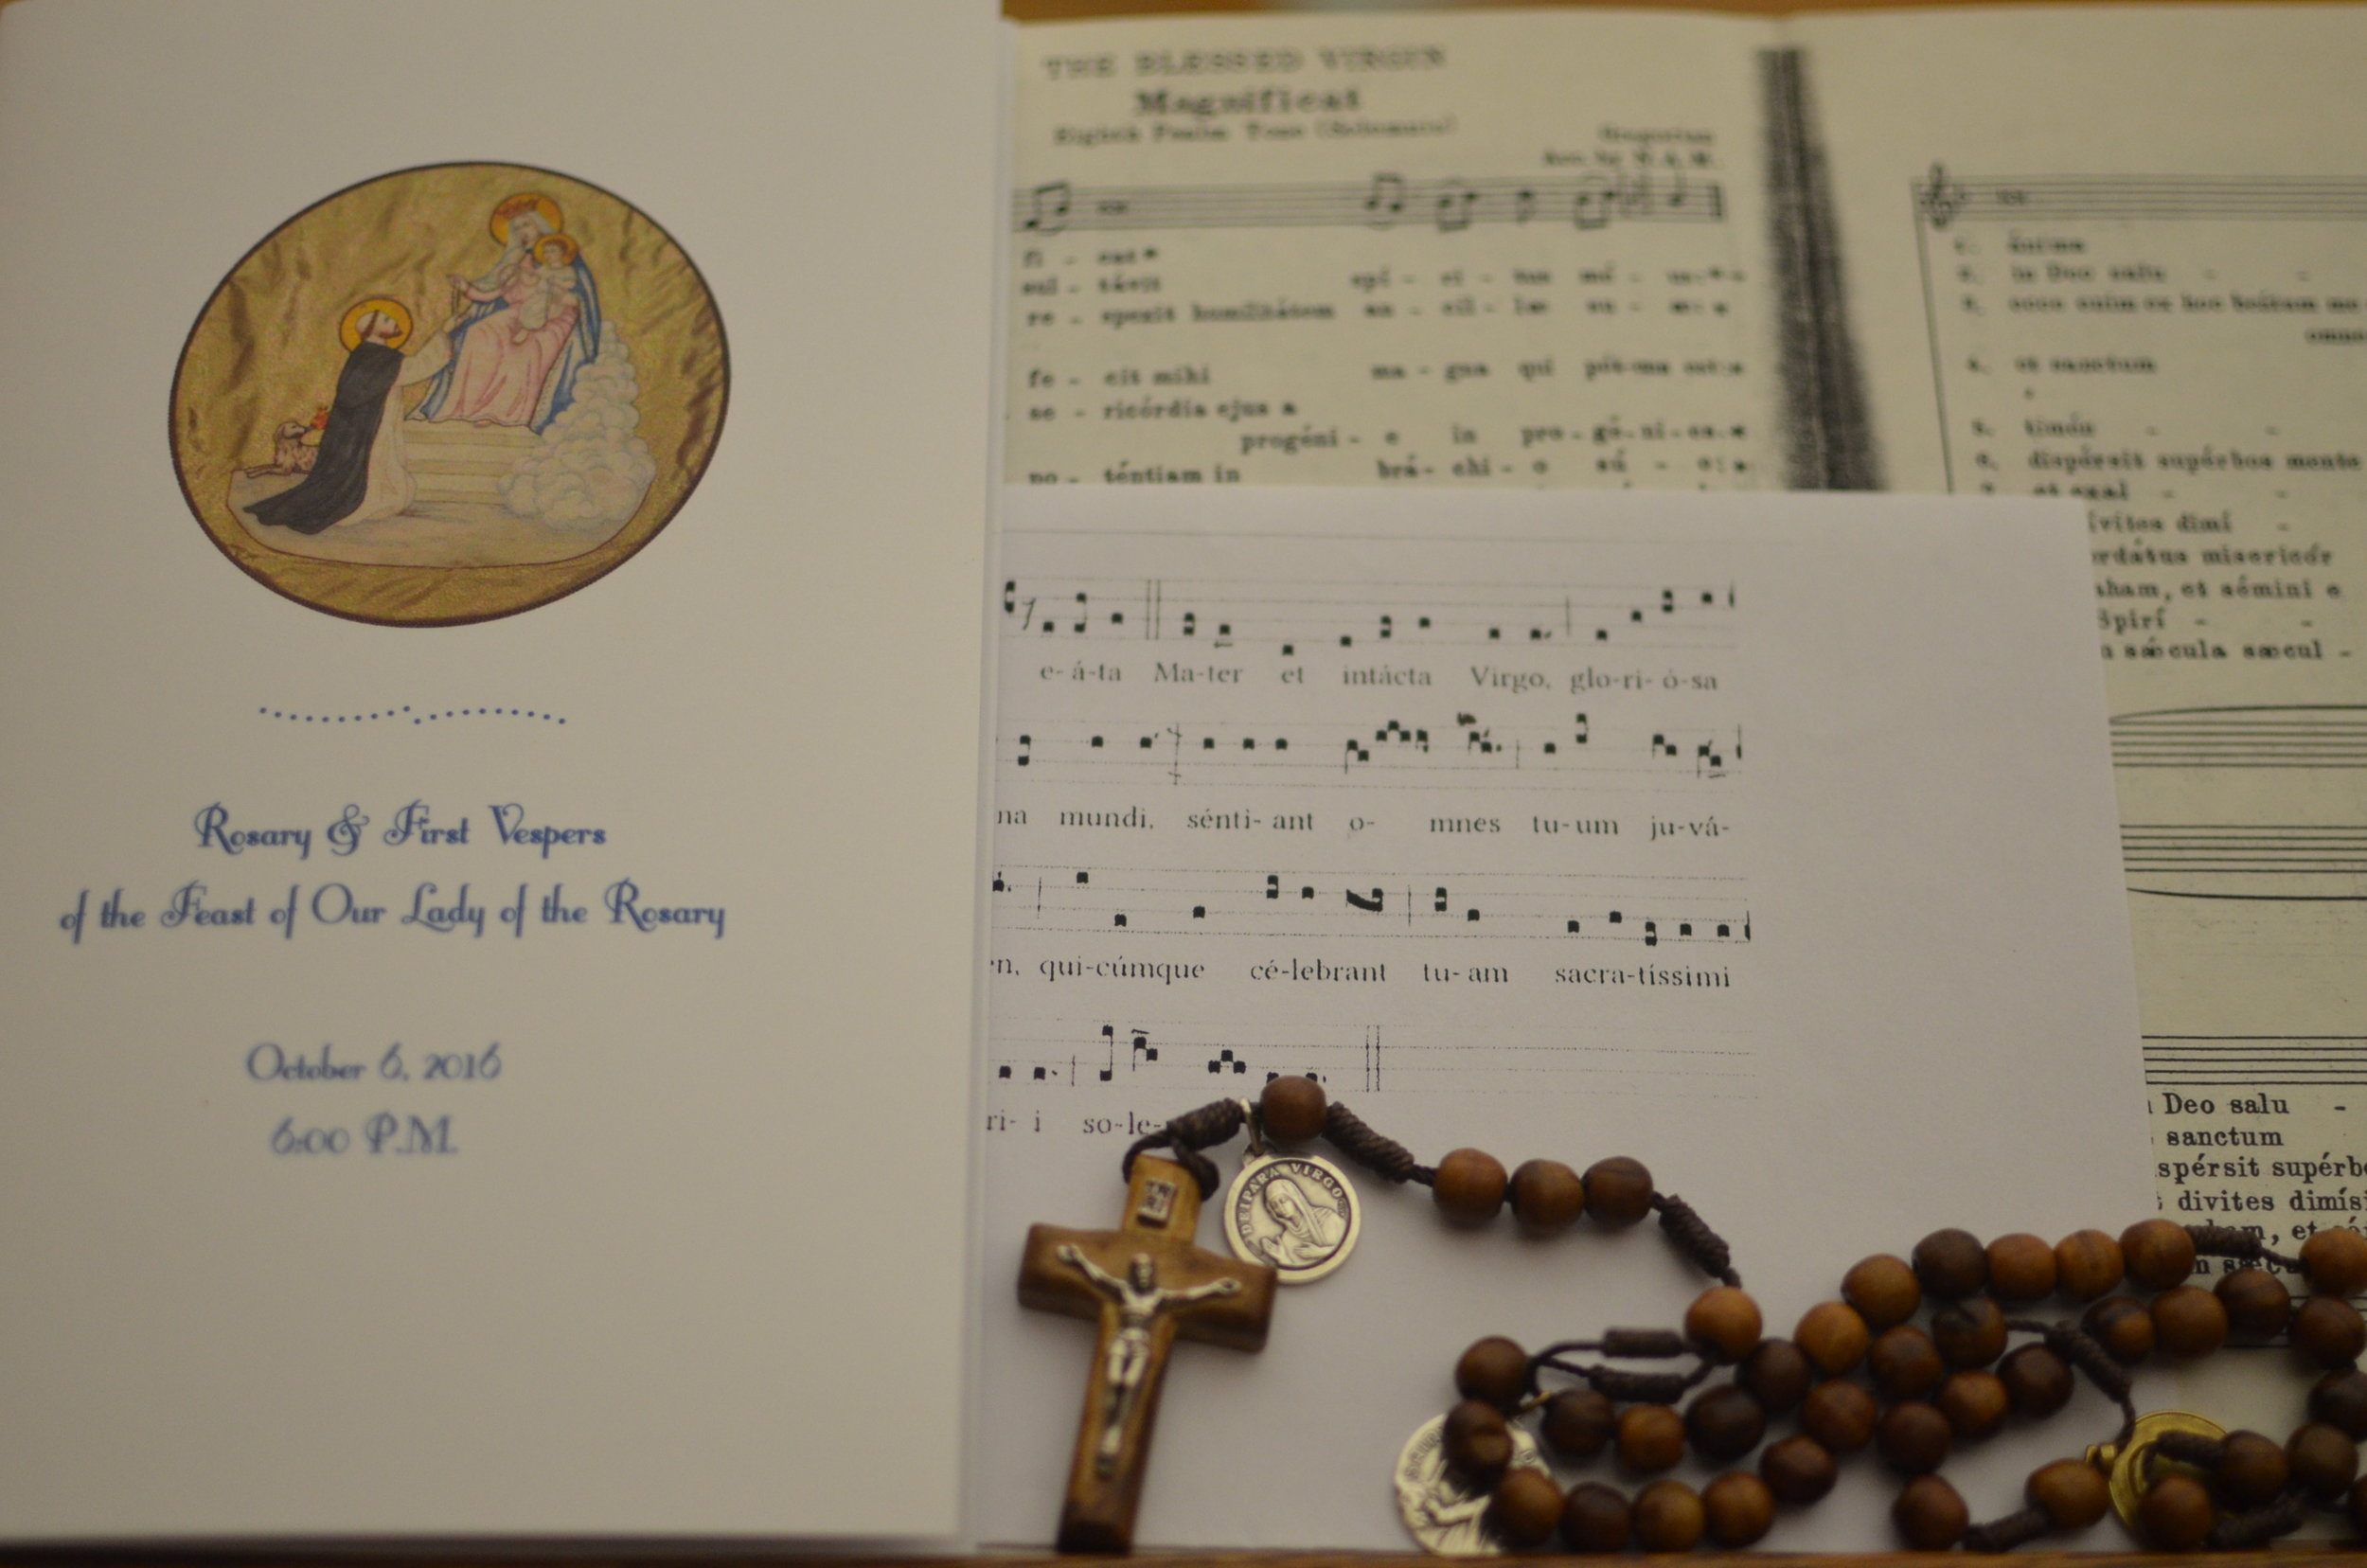 Rosary & First Vespers
of the Feast of Our Lady of the Rosary
October 6, 2016
6:00 P.M.
THE BLESSED VIRGIN
Magnificat
Eighth Psalm Tone (Solemn)
Gregorian
Arr. by N. A. M.
fi - cat *
sul - távit spí - ri - tus mé - us: *
re - spexit humilitátem an - cíl - lae su - ae: *
fe - cit mihi ma - gna qui pót-ens est: *
se - ricórdia ejus a
progéni - e in pro - gé - ni - es *
po - téntiam in brá - chi - o sú - o: *
1. ánima
2. in Deo salu - -
3. ecce enim ex hoc beátam me
omne
4. et sanctum
5. timén - -
6. dispérsit supérbos mente
7. et exal - -
ívites dimí -
rdátus misericór
aham, et sémini e
Spirí - -
n sæcula sæcul -
e-á-ta Ma-ter et intácta Virgo, glo-ri-ó-sa
na mundi, sénti-ant o- mnes tu-um ju-vá-
n, qui-cúmque cé-lebrant tu-am sacra-tíssimi
ri- i so-le-
Deo salu -
sanctum
spérsit supérb
divites dimís
ham, et sé
n sæc
INRI
DEIPARA VIRGO